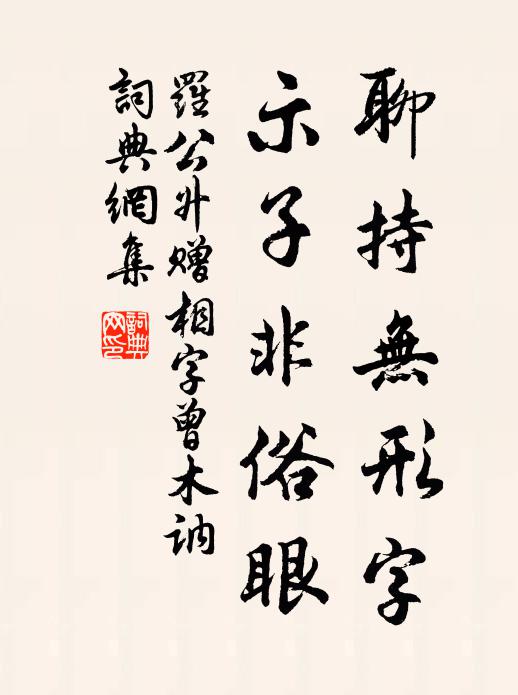 聊持無形字
示子非俗眼
羅公升贈相字曾木訥
詞典網集
詞典網印